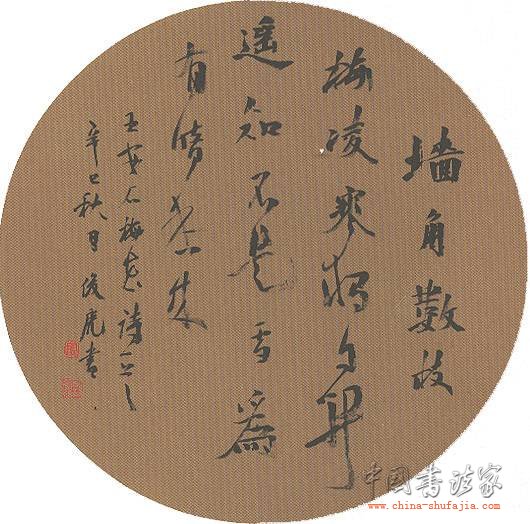 墙角數枝
梅凌寒独自開
遥知不是雪爲
有暗香来
王安石梅花詩
辛巳秋日書
中國書法家
www.china-shufajia.com